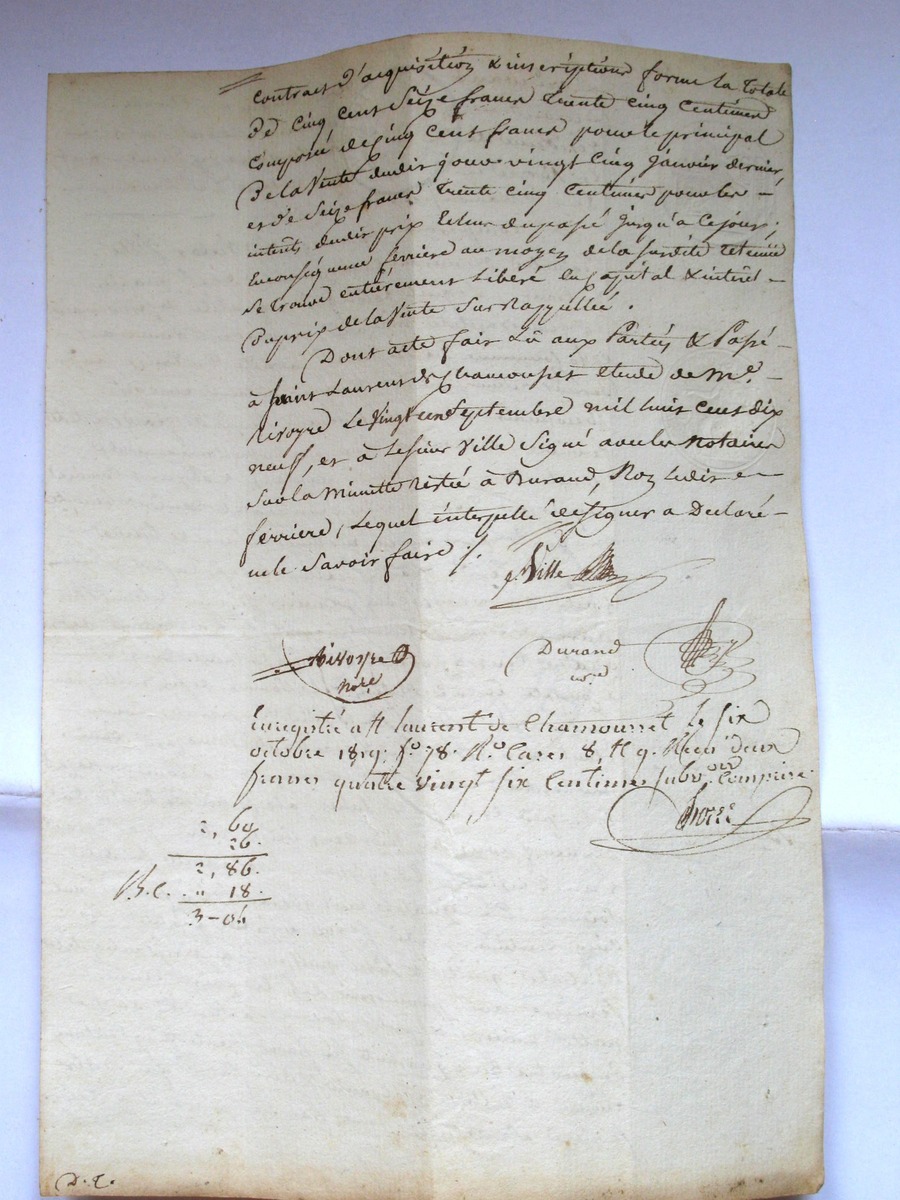 contract d'acquisition & inscriptions forme la Totale
De Cinq cent Seize francs Trente cinq Centimes
Composée de Cinq Cent francs pour le principal
De la Vente dudit jour vingt Cinq Janvier dernier,
et de Seize francs Trente cinq Centimes pour les
intérêts dudit prix Echus du passé jusqu'à ce jour,
En conséquence ferriere au moyen de la
Se trouve entièrement Libéré en Capital & intérêt
Du prix de la Vente Sus Rappellée.
Dont acte fait Lû aux Parties & Passé
à Saint Laurent de Chamousset étude de Me.
Rivoyre Le Vingt un Septembre mil huit cent dix
neuf, et à Le sieur Ville Signé avec les Notaires
Sur la Minutte Restée à Durand, Non Ledit
ferriere, Lequel interpellé de Signer a Declaré
ne le Savoir faire ./.
Ville
Rivoyre
Nore.
Durand
nre
Enregistré a St laurent de Chamousset le six
octobre 1819. fo. 78. Ro. Cases 8, & 9. Recu deux
francs quatre vingt six Centimes subvon Comprise.
2, 60
26.
2, 86.
" 18.
3-04